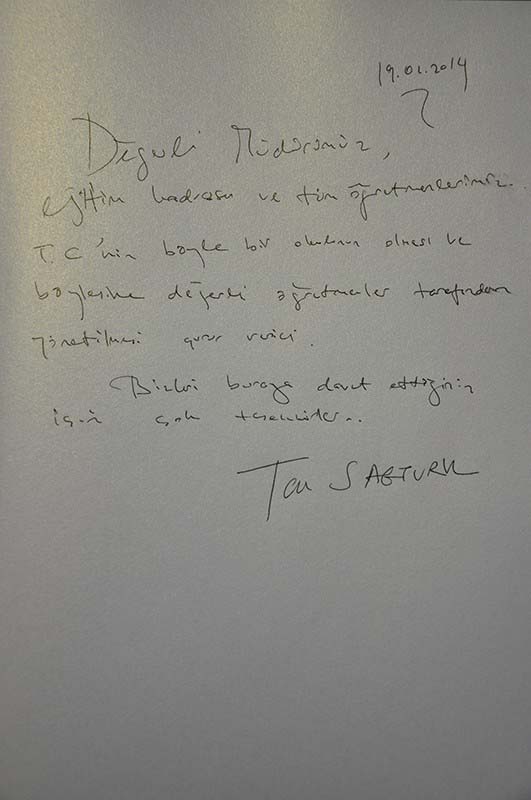 19.01.2014
Değerli Müdürümüz,
eğitim kadrosu ve tüm öğretmenlerimiz.
T.C'nin böyle bir okulunun olması ve
böylesine değerli öğretmenler tarafından
yönetilmesi gurur verici.
Bizleri buraya davet ettiğiniz
için çok teşekkürler..
Tan SAĞTÜRK